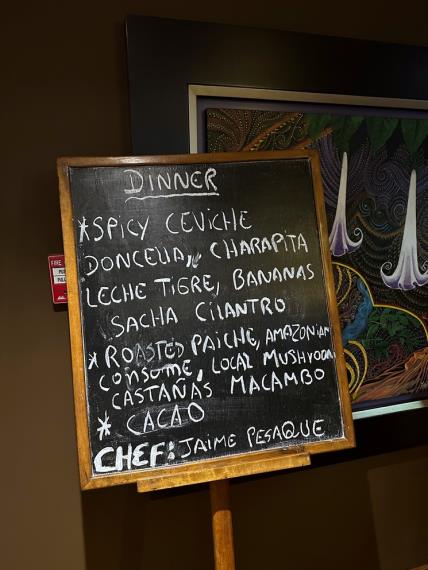 DINNER
*SPICY CEVICHE
DONCELLA, CHARAPITA
LECHE TIGRE, BANANAS
SACHA CILANTRO
* ROASTED PAICHE, AMAZONIAN
CONSOME, LOCAL MUSHROOM
CASTAÑAS MACAMBO
* CACAO
CHEF: JAIME PESAQUE
FIRE